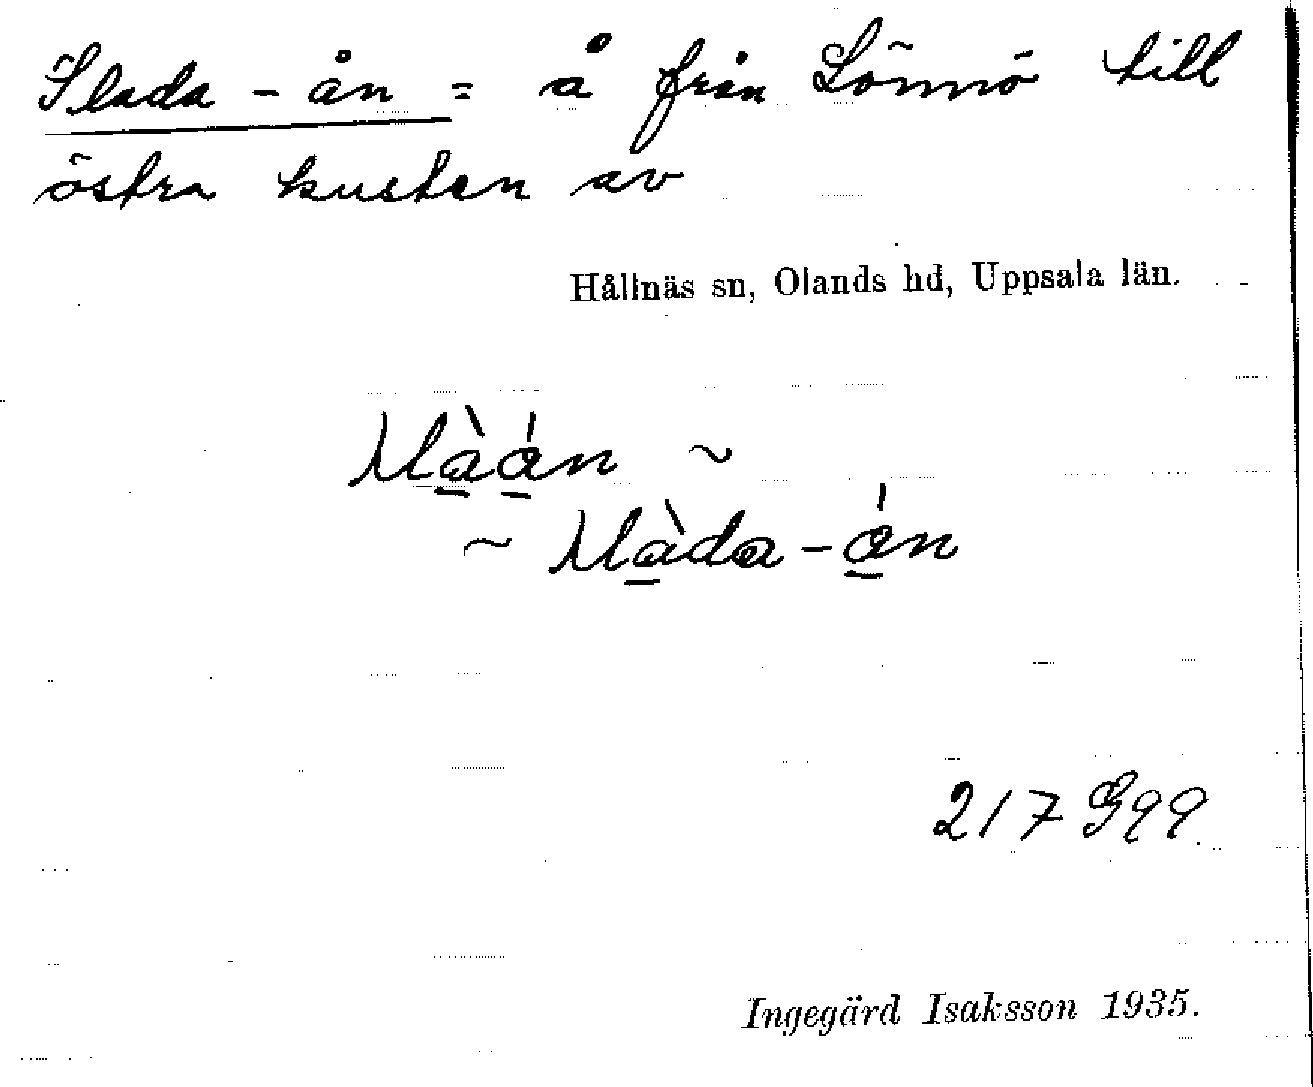 Slada - ån = å från Lönnö till
östra kusten av
Hållnäs sn, Olands hd, Uppsala län.
~
~
217 G99.
Ingegärd Isaksson 1935.